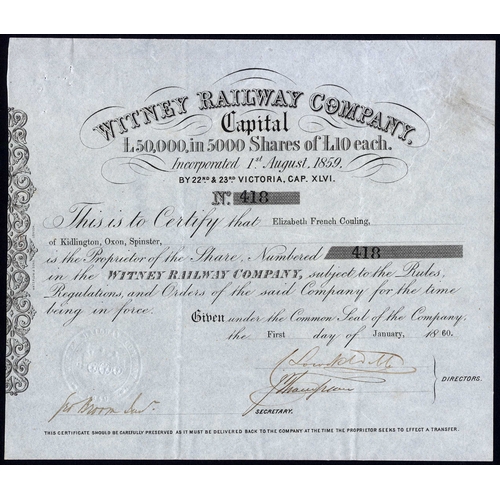 WITNEY RAILWAY COMPANY,
Capital
£50,000, in 5000 Shares of £10 each.
Incorporated 1st August, 1859,
BY 22ND & 23RD VICTORIA, CAP. XLVI.
No. 418
This is to Certify that Elizabeth French Couling,
of Kidlington, Oxon, Spinster,
is the Proprietor of the Share, Numbered 418
in the WITNEY RAILWAY COMPANY, subject to the Rules,
Regulations, and Orders of the said Company for the time
being in force.
Given under the Common Seal of the Company,
the First day of January, 1860.
DIRECTORS.
SECRETARY.
THIS CERTIFICATE SHOULD BE CAREFULLY PRESERVED AS IT MUST BE DELIVERED BACK TO THE COMPANY AT THE TIME THE PROPRIETOR SEEKS TO EFFECT A TRANSFER.